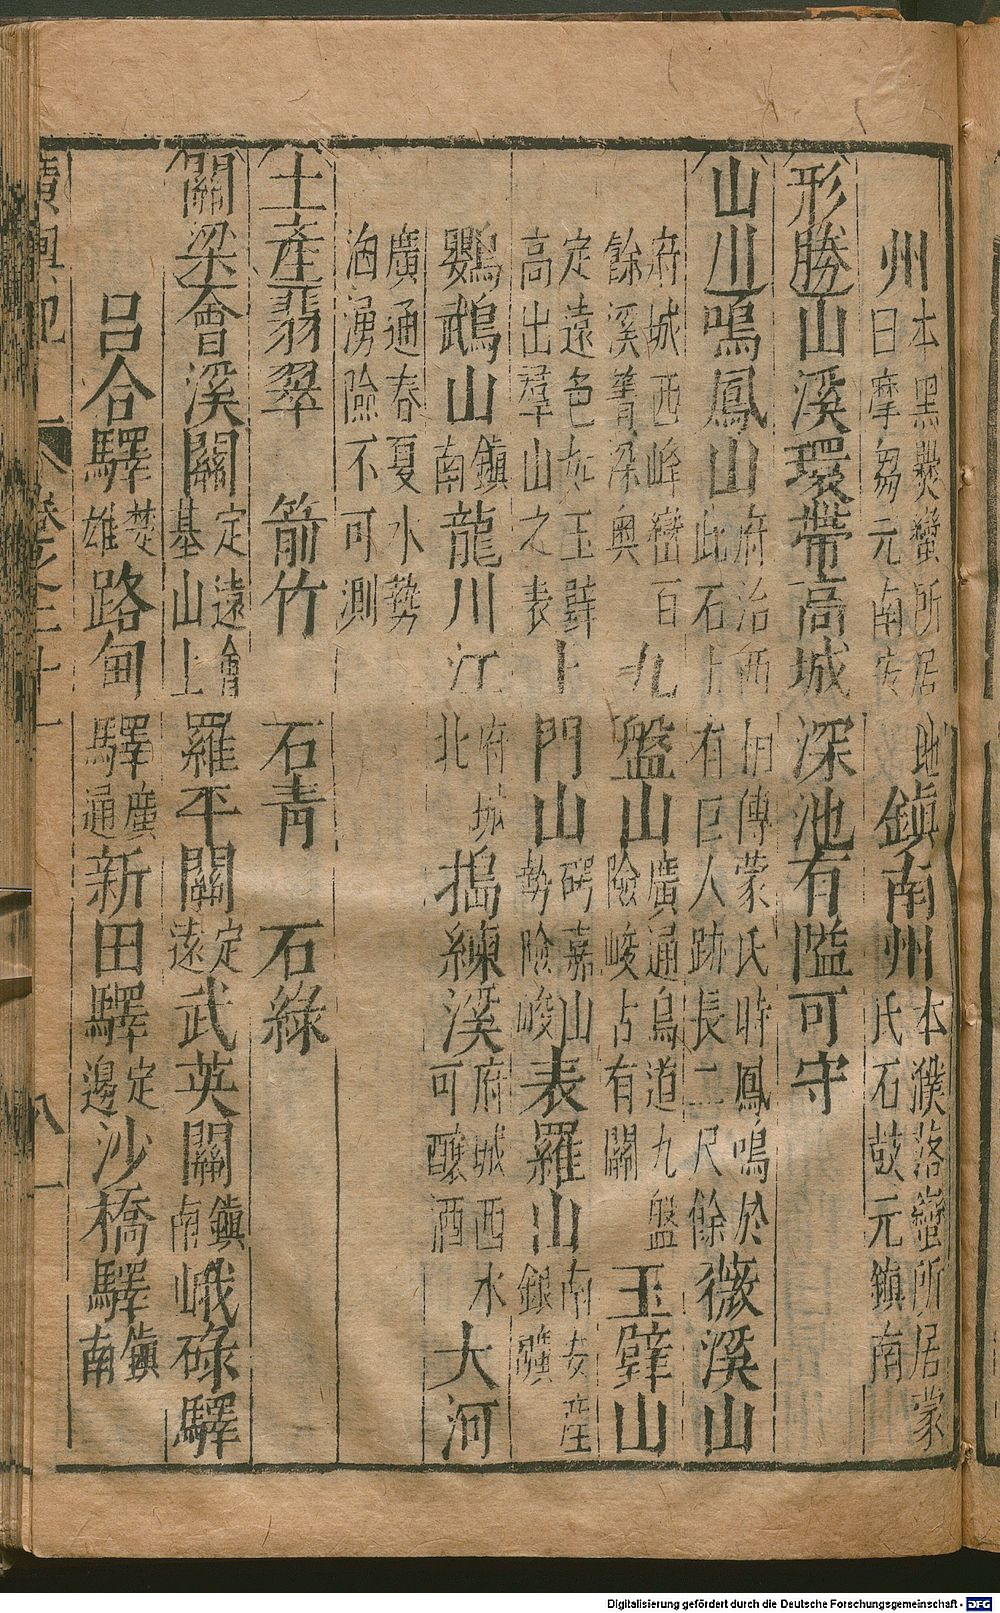 州 本黑爨蠻所居地 曰摩芻元南安 鎮南州 本濮落蠻所居蒙 氏石鼓元鎮南
形勝 山溪環帶高城深池有隘可守
山川 鳴鳳山 府治西 旧傳蒙氏時鳳鳴於 此石上 有巨人跡長二尺餘 薇溪山
府城西峰巒百 餘溪箐深奥 九盤山 廣通鳥道九盤 險峻占有關 玉壁山
定遠色如玉壁 高出羣山之表 門山 碍嘉山 勢險峻 表羅山 南安產 銀礦
鸚鵡山 鎮南 龍川江 府城 北 搗練溪 府城西水 可釀酒 大河
廣通春夏水勢 洶湧險不可測
土產 翡翠 箭竹 石青 石綠
關梁 會溪關 定遠會 基山上 羅平關 定遠 武英關 鎮南 峨碌驛
呂合驛 楚雄 路甸驛 廣通 新田驛 定邊 沙橋驛 鎮南
卷之二十一
Digitalisierung gefördert durch die Deutsche Forschungsgemeinschaft - DFG